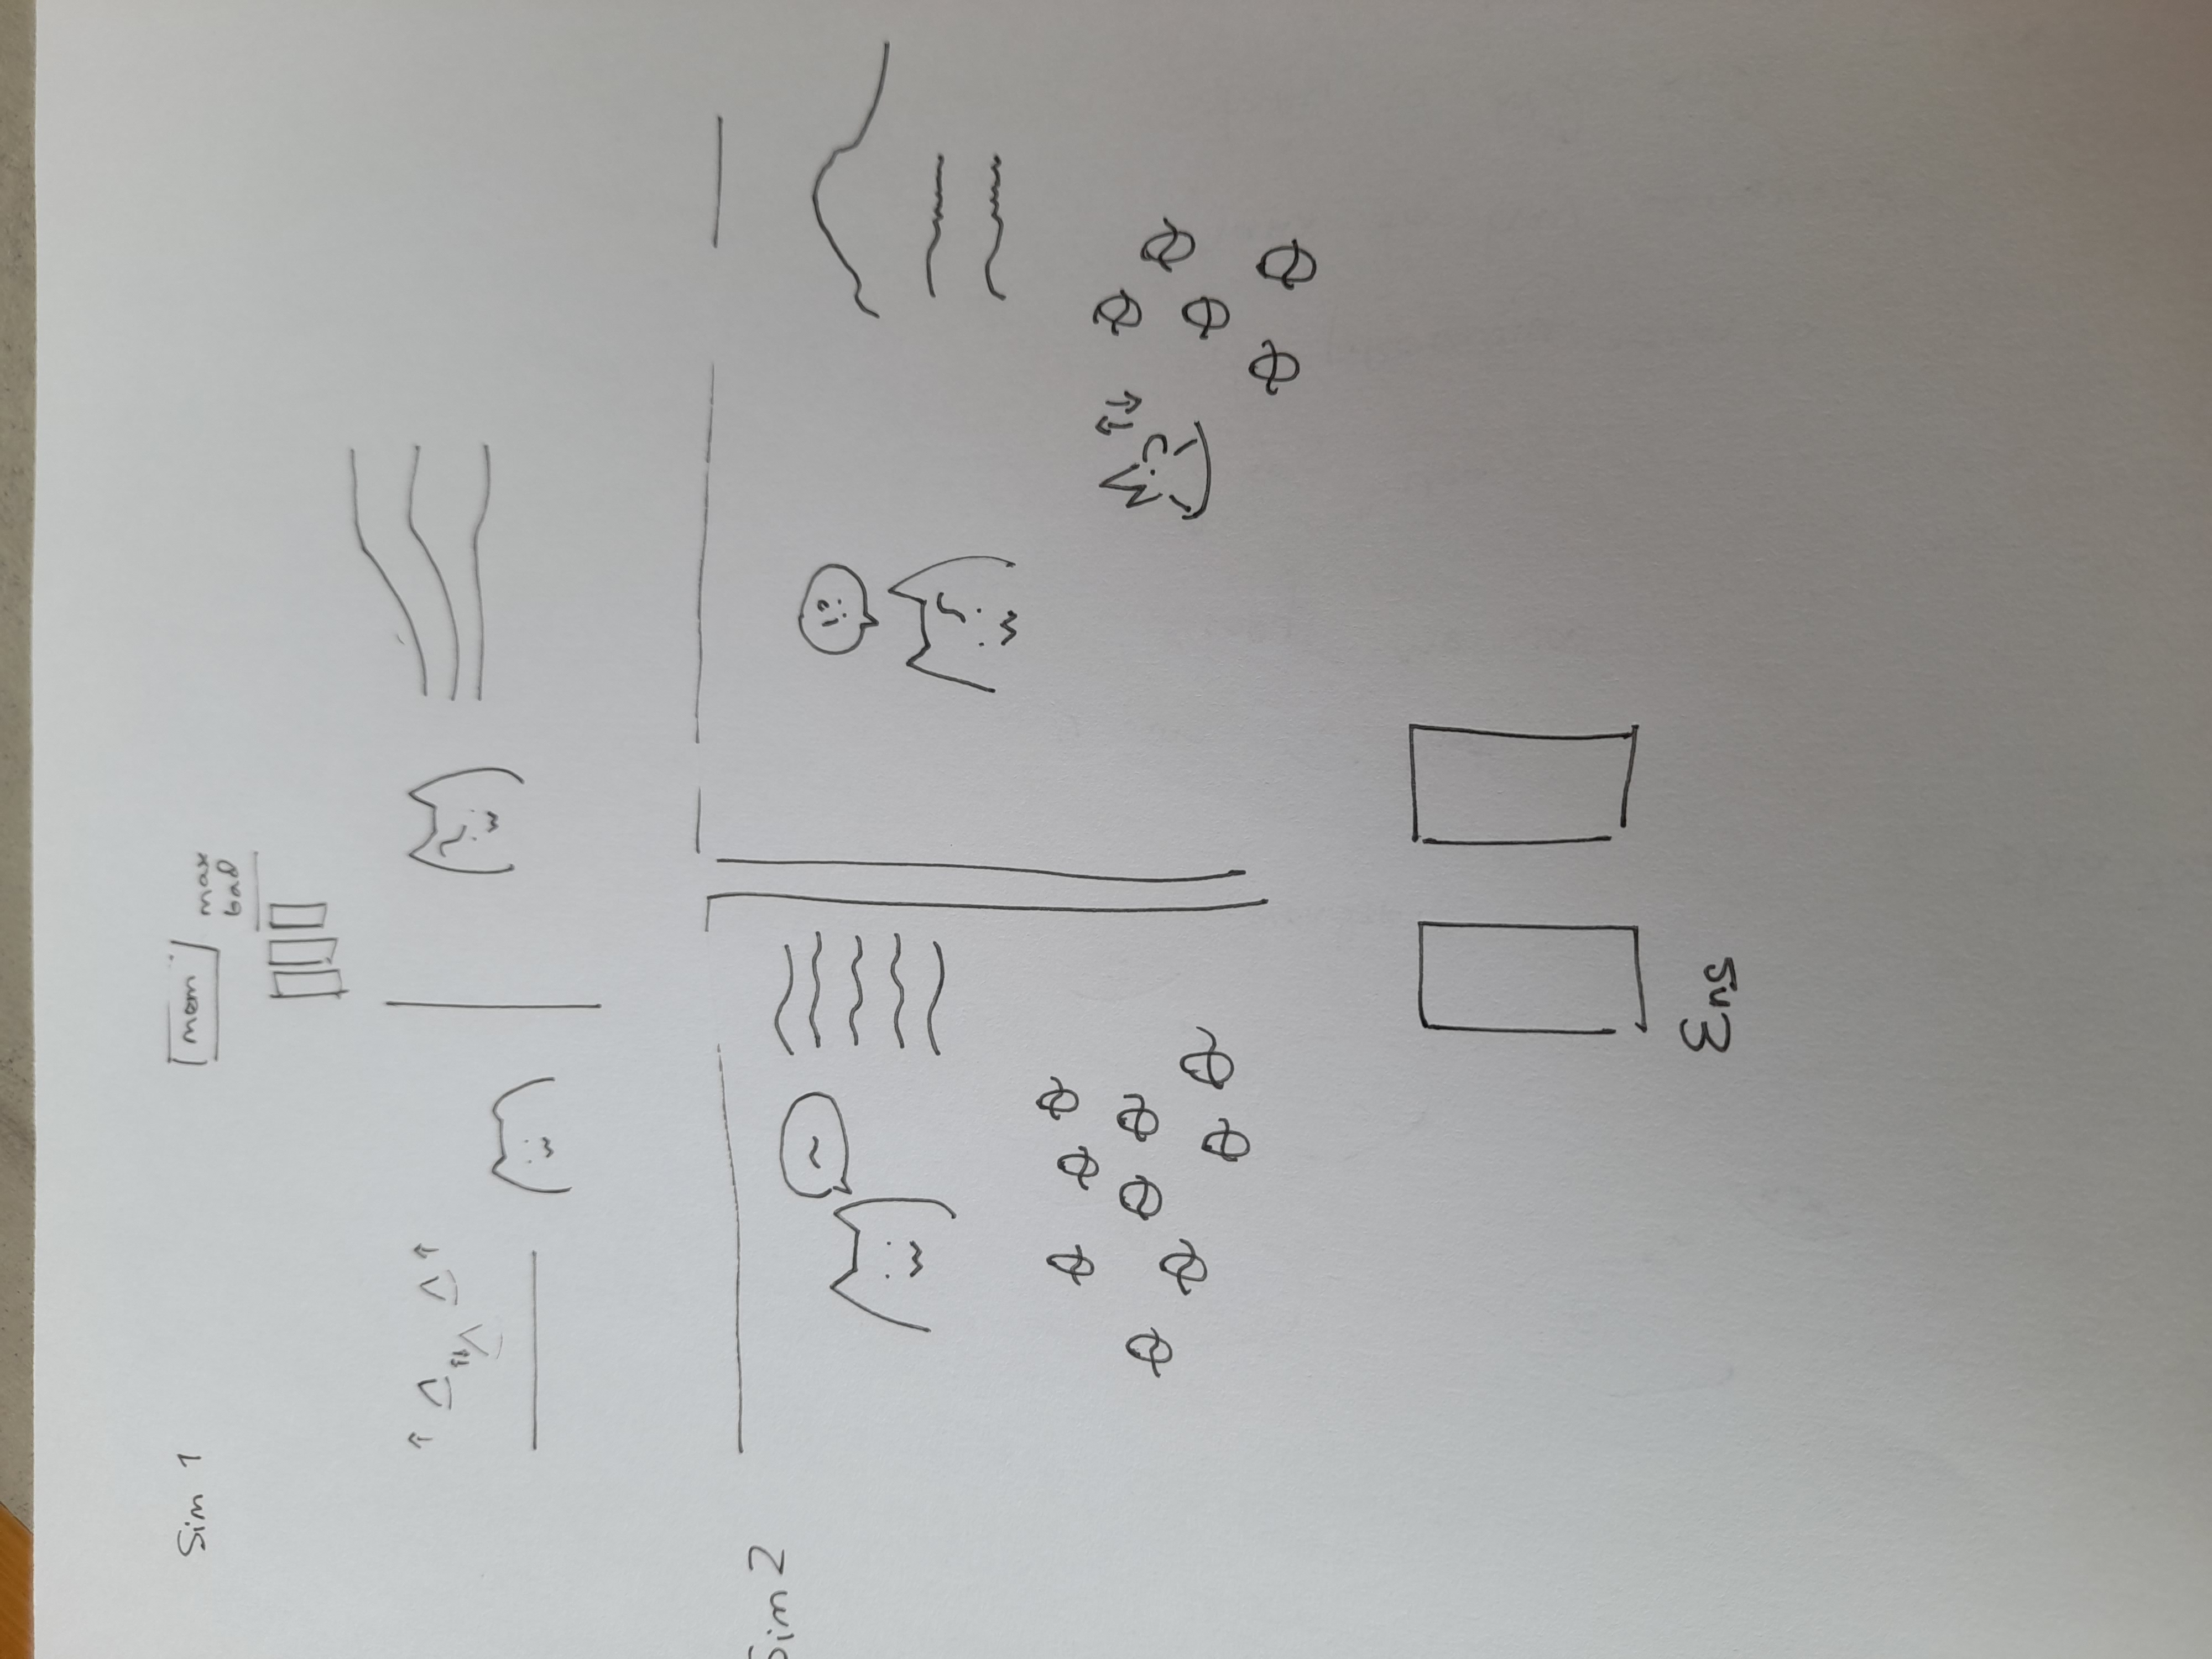 Sim 1
mem
max
bad
Sim 2
~
!?
Ens